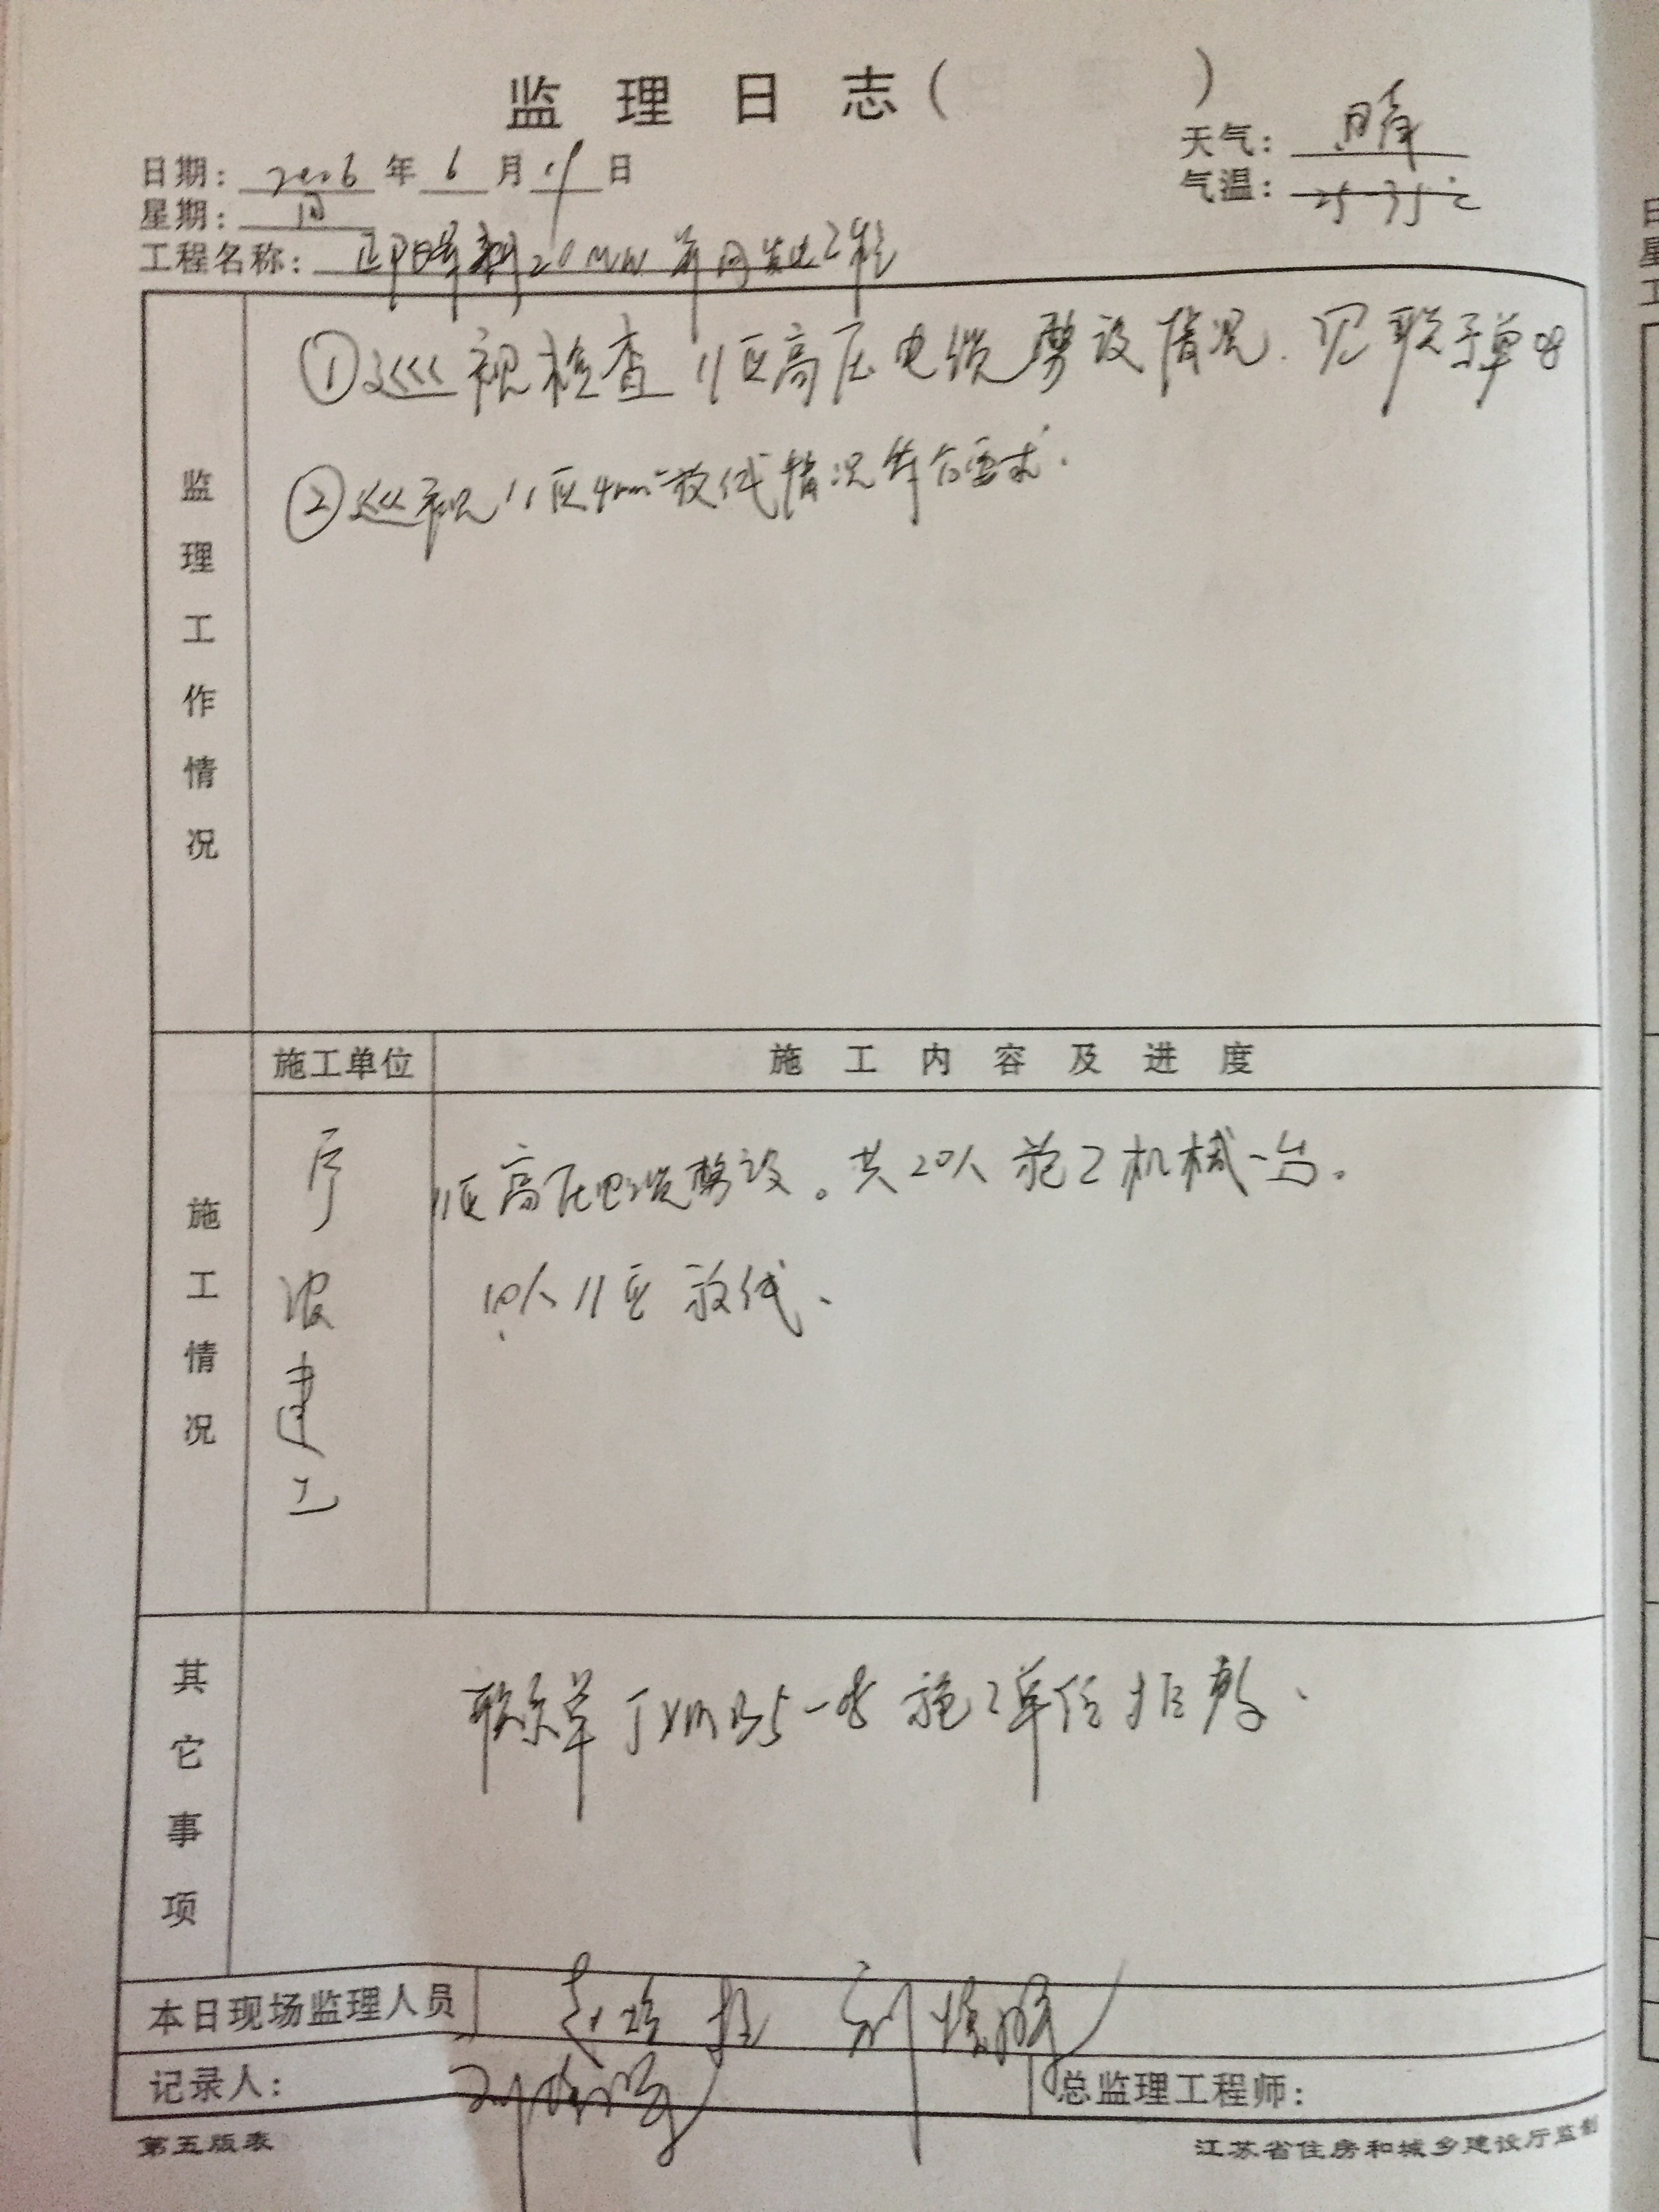 监理日志( )
天气: 晴
日期: 2006 年 6 月 日
气温: 25-35℃
星期: 四
工程名称: 20MW并网发电工程
监理工作情况
①巡视检查11区高压电缆敷设情况.见联系单08
②巡视11区4mm²放线情况符合要求.
施工单位
施工内容及进度
施工情况
建工
11区高压电缆敷设。共20人 施工机械一台.
10人11区放线、
其它事项
联系单 施工单位拒为.
本日现场监理人员
记录人:
总监理工程师:
第五版表
江苏省住房和城乡建设厅监制